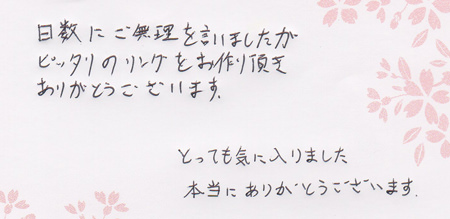 日数にご無理を言いましたが
ピッタリのリングをお作り頂き
ありがとうございます。
とっても気に入りました
本当にありがとうございます.